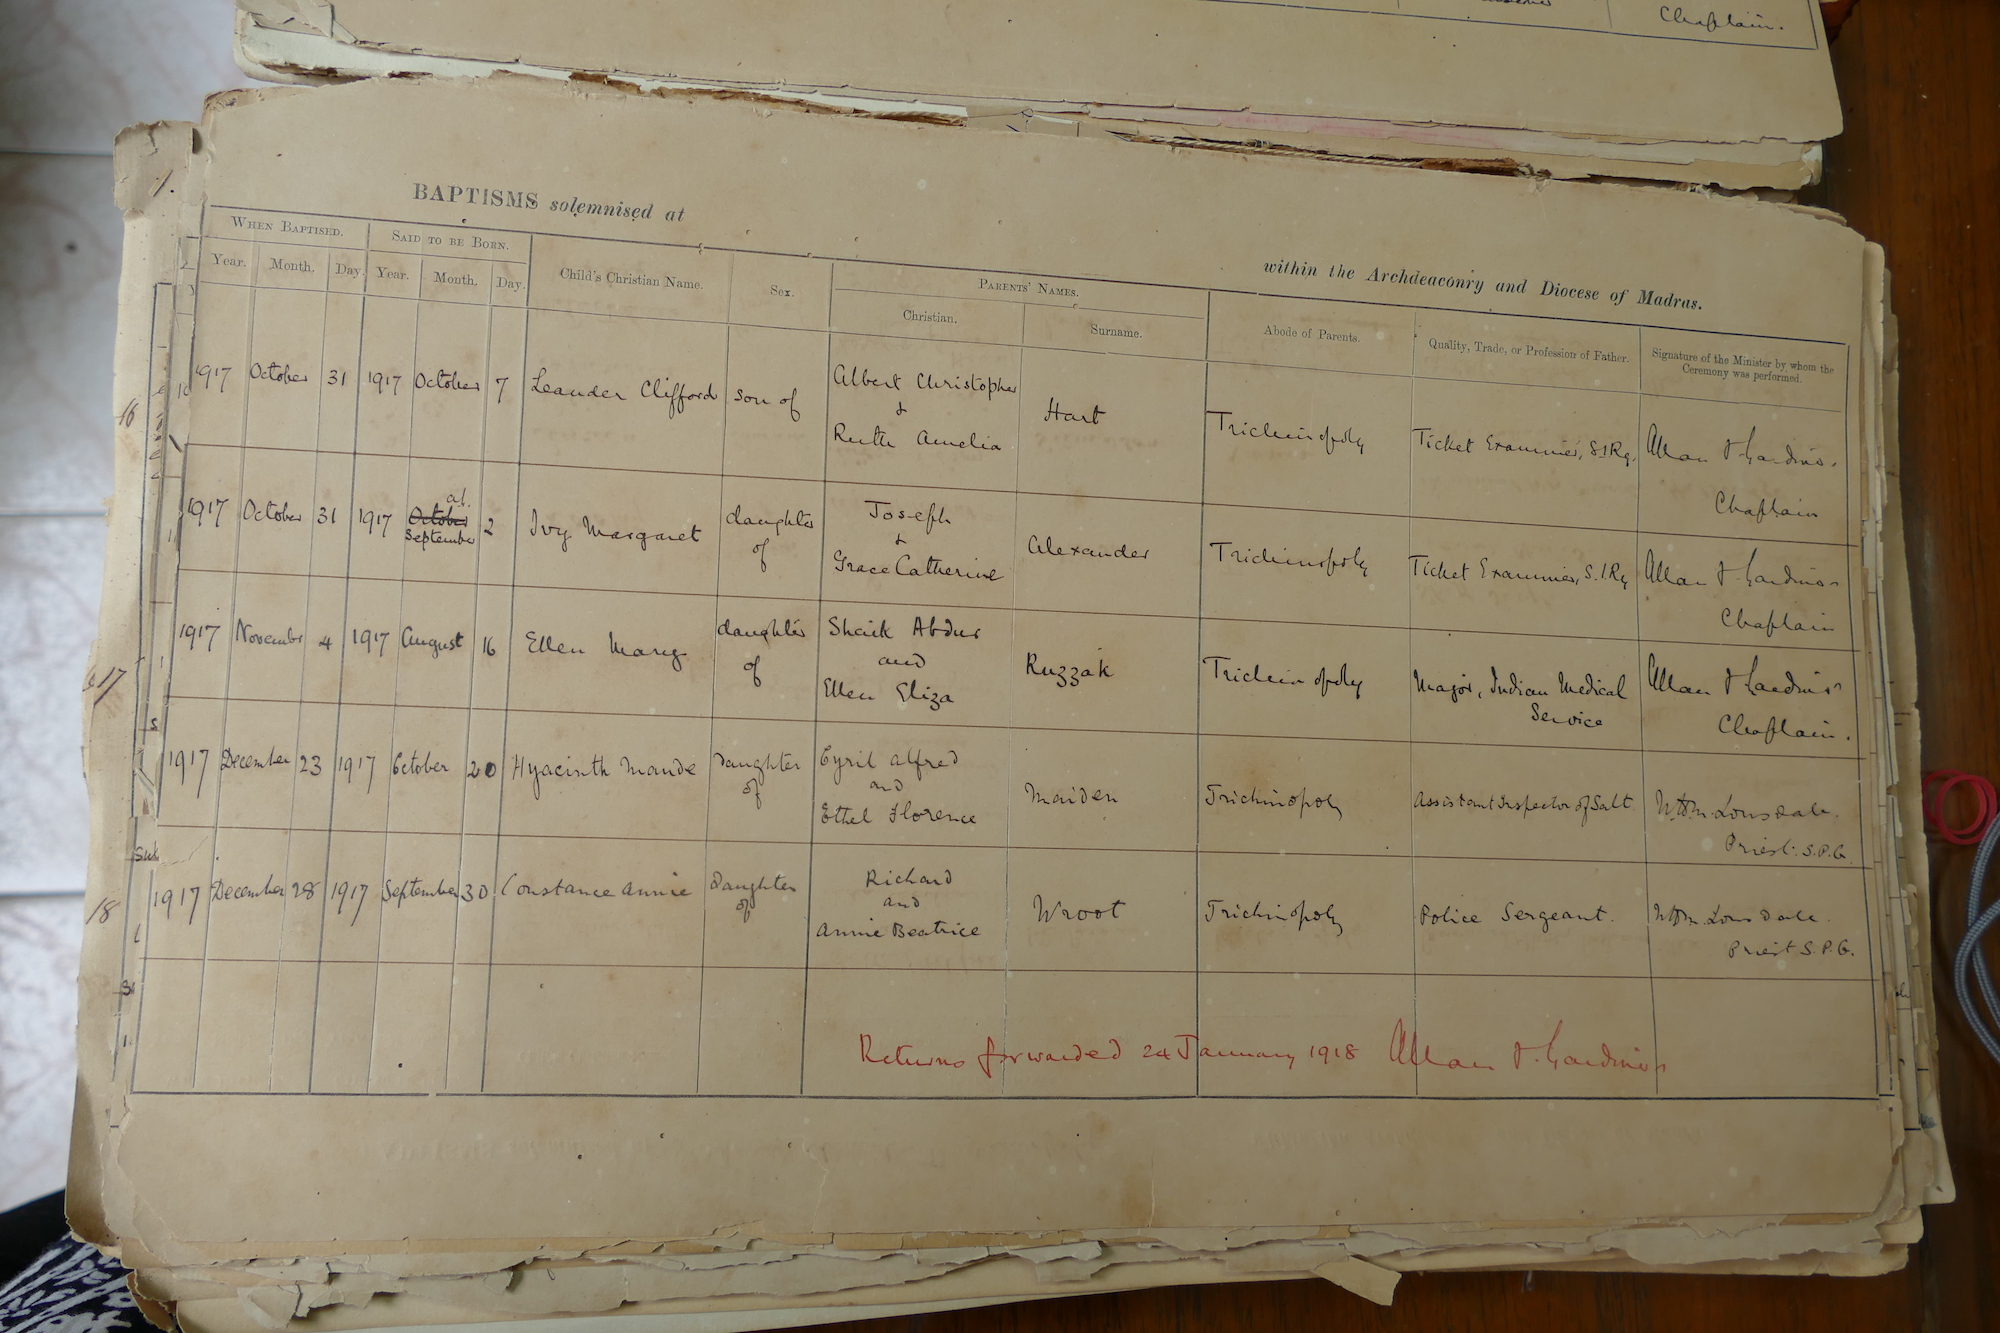 Chaplain.
BAPTISMS solemnised at
within the Archdeaconry and Diocese of Madras.
WHEN BAPTISED. SAID TO BE BORN. Child's Christian Name. Sex. PARENTS' NAMES. Abode of Parents. Quality, Trade, or Profession of Father. Signature of the Minister by whom the
Ceremony was performed.
Year. Month. Day. Year. Month. Day. Christian. Surname.
1917 October 31 1917 October 7 Leander Clifford son of Albert Christopher
&
Ruth Amelia
Hart Trichinopoly Ticket Examiner, S.I.Ry. Allan
Chaplain
16
1917 October 31 1917 October
September 2 Ivy Margaret daughter
of
Joseph
&
Grace Catherine
Alexander Trichinopoly Ticket Examiner, S.I.Ry Allan
Chaplain
1917 November 4 1917 August 16 Ellen Mary daughter
of
Shaik Abdur
and
Ellen Eliza
Ruzzak Trichinopoly Major, Indian Medical
Service
Allan
Chaplain.
17
1917 December 23 1917 October 20 Hyacinth Maude Daughter
of
Cyril Alfred
and
Ethel Florence
Maiden Trichinopoly Assistant Inspector of Salt. Lonsdale.
Priest. S.P.G.
1917 December 28 1917 September 30 Constance Annie Daughter
of
Richard
and
Annie Beatrice
Wroot Trichinopoly Police Sergeant. Lonsdale.
Priest S.P.G.
18
Returns forwarded 24 January 1918 Allan